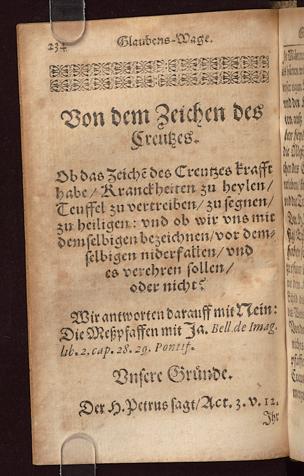 234 Glaubens-Wage.
Von dem Zeichen des
Creutzes.
Ob das Zeichē des Creutzes krafft
habe/ Kranckheiten zu heylen/
Teuffel zu vertreiben/ zu segnen/
zu heiligen: vnd ob wir vns mit
demselbigen bezeichnen/ vor dem-
selbigen niderfallen/ vnd
es verehren sollen/
oder nicht?
Wir antworten darauff mit Nein:
Die Meßpfaffen mit Ja. Bell. de Imag.
lib. 2. cap. 28. 29. Pontif.
Vnsere Gründe.
Der H. Petrus sagt/ Act. 3. v. 12.
Ihr